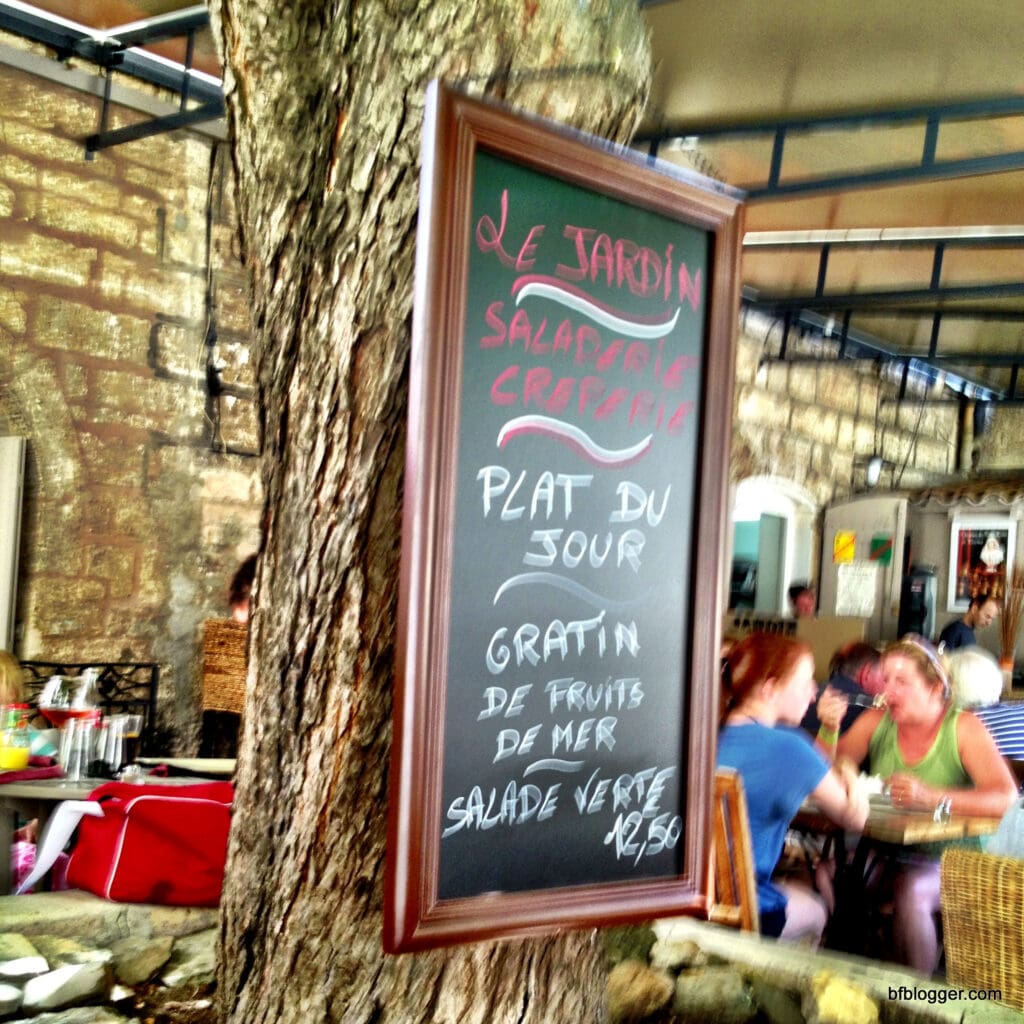 LE JARDIN
SALADERIE
CREPERIE
PLAT DU
JOUR
GRATIN
DE FRUITS
DE MER
SALADE VERTE
12,50
bfblogger.com